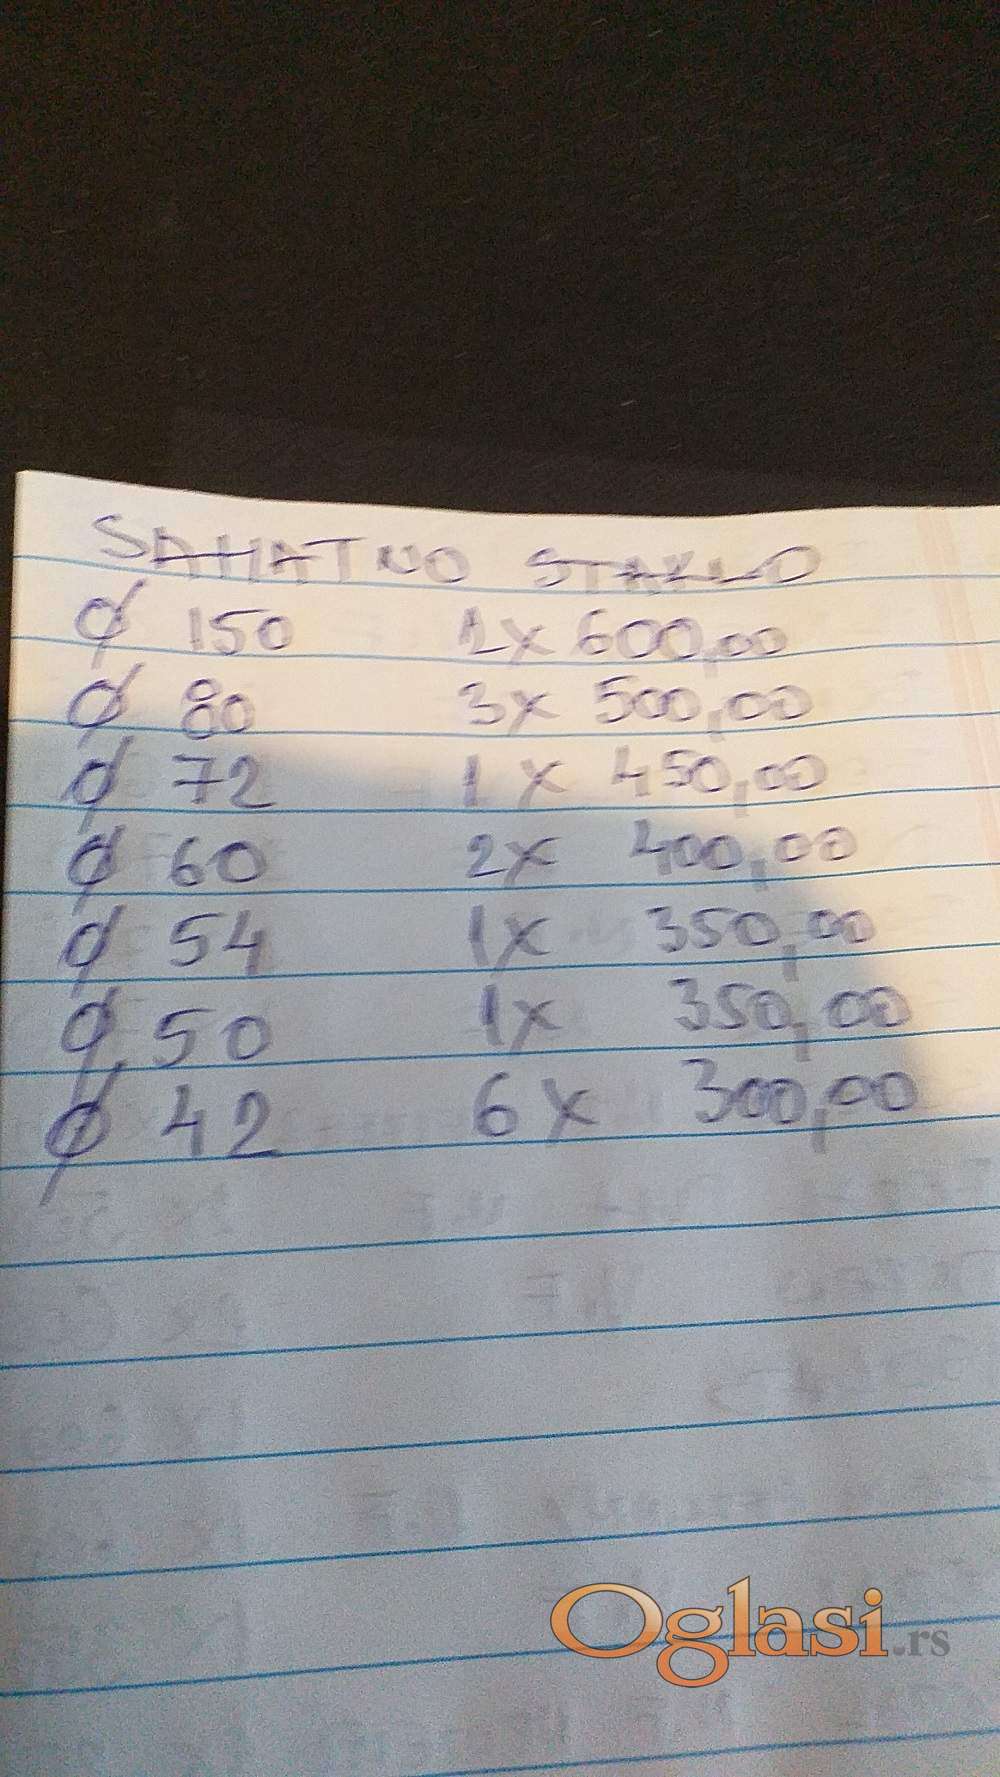 SAHATNO STAKLO
ø 150 2x 600,00
ø 80 3x 500,00
ø 72 1x 450,00
ø 60 2x 400,00
ø 54 1x 350,00
ø 50 1x 350,00
ø 42 6x 300,00
Oglasi.rs